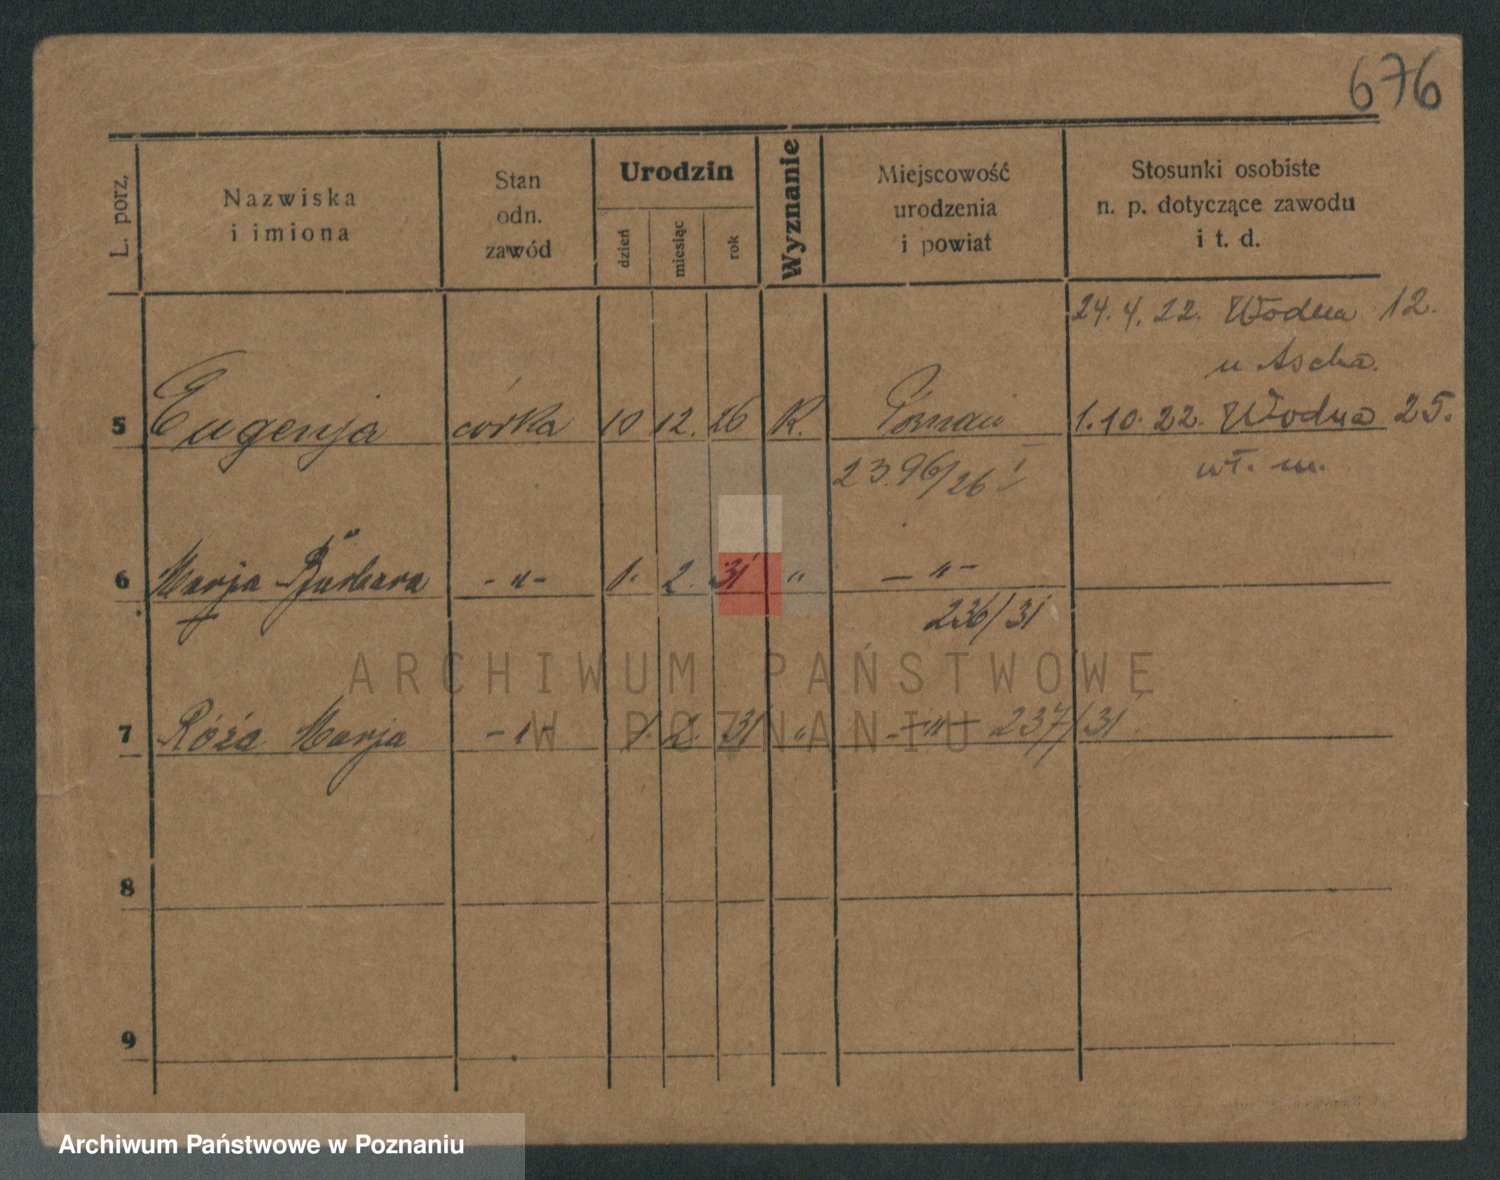 676
L. porz.
Nazwiska
i imiona
Stan
odn.
zawód
Urodzin
dzień
miesiąc
rok
Wyznanie
Miejscowość
urodzenia
i powiat
Stosunki osobiste
n. p. dotyczące zawodu
i t. d.
24. 4. 22. Wodna 12.
u Ascha.
5 Eugenja córka 10 12. 26 K. Poznań 1. 10. 22. Wodna 25.
2396/26 I wł. m.
6 Marja Barbara -"- 1. 2. 31 " -"-
236/31
7 Róża Marja -"- 1. 2. 31 " -"- 237/31
8
9
ARCHIWUM PAŃSTWOWE
W POZNANIU
Archiwum Państwowe w Poznaniu